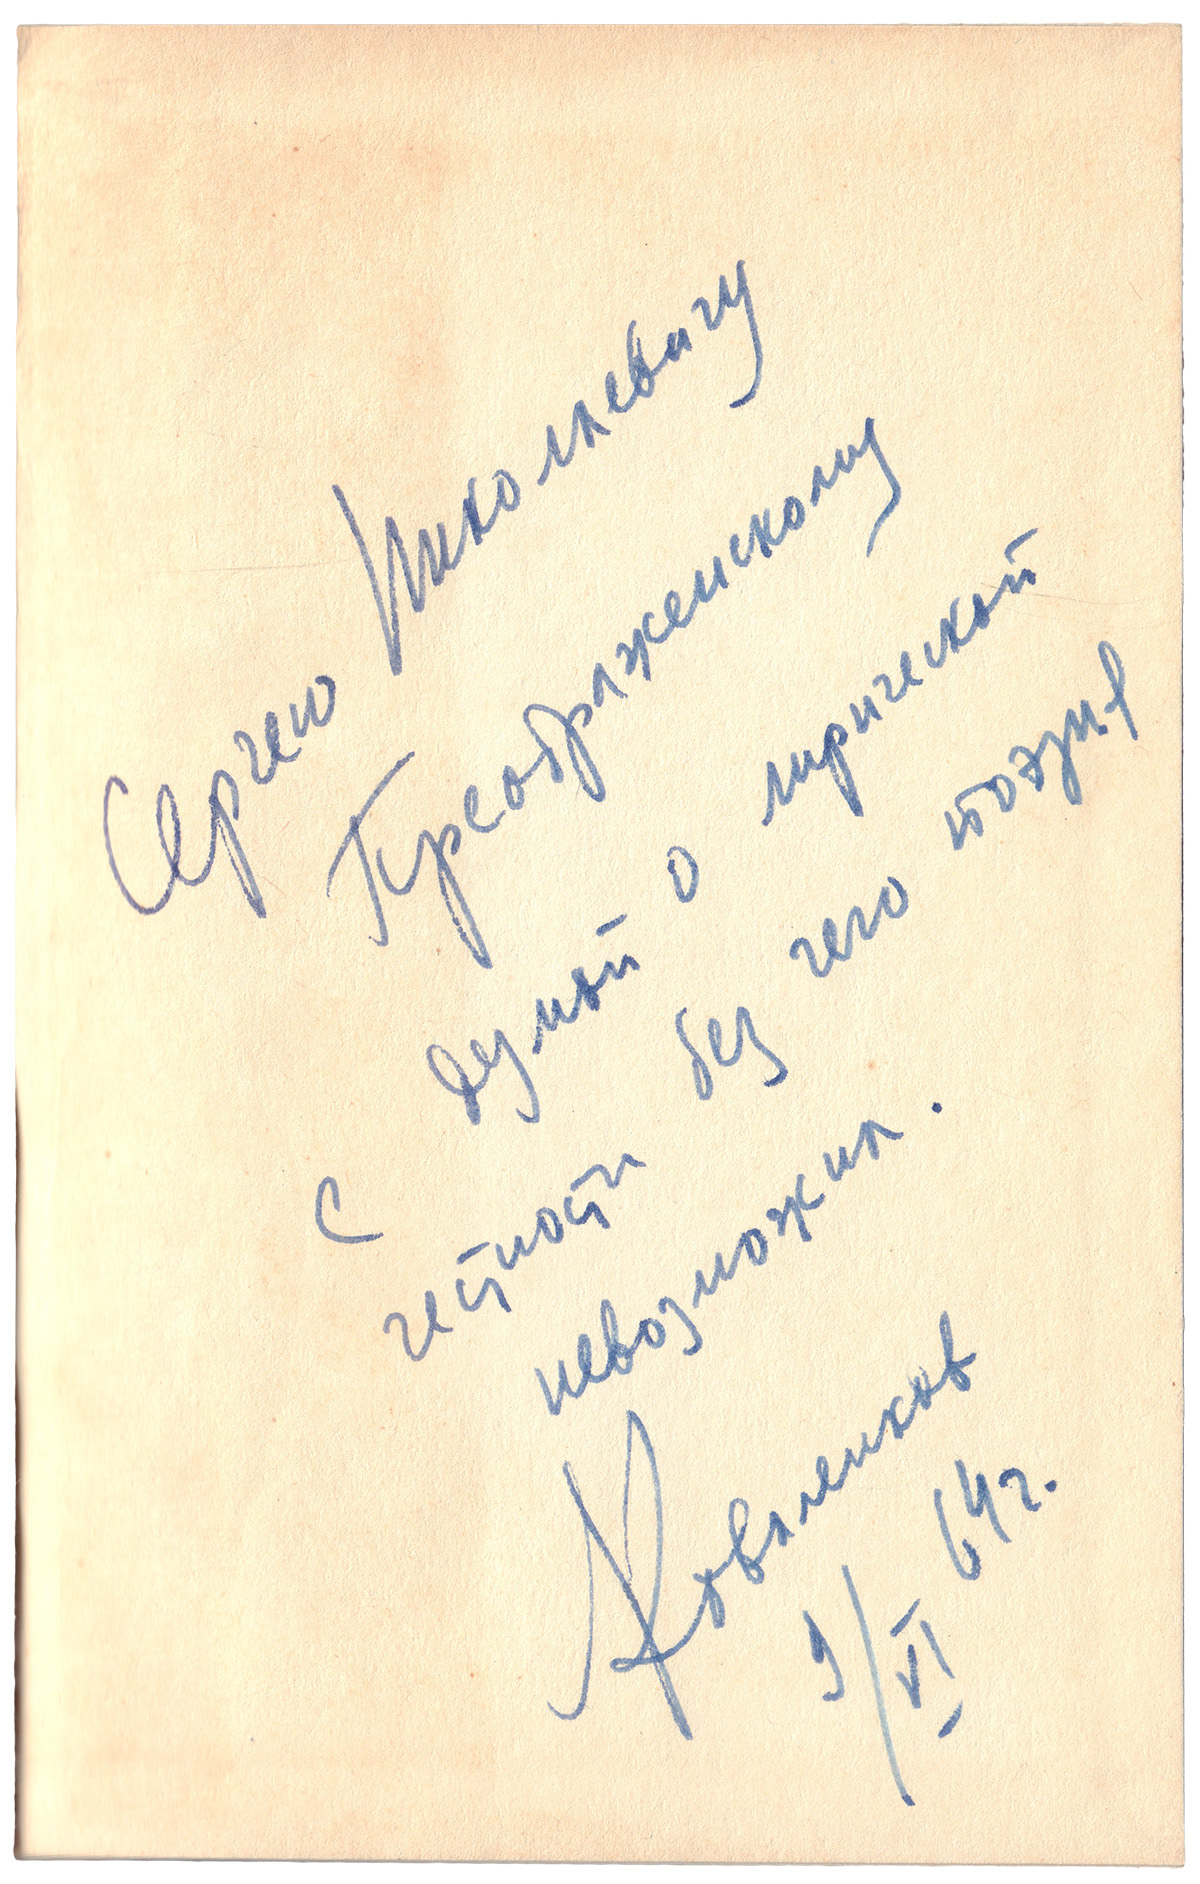 Сергею Николаевичу
Преображенскому
с думой о лирической
честности без чего поэзия
невозможна.
Коваленков
9/VI 64 г.